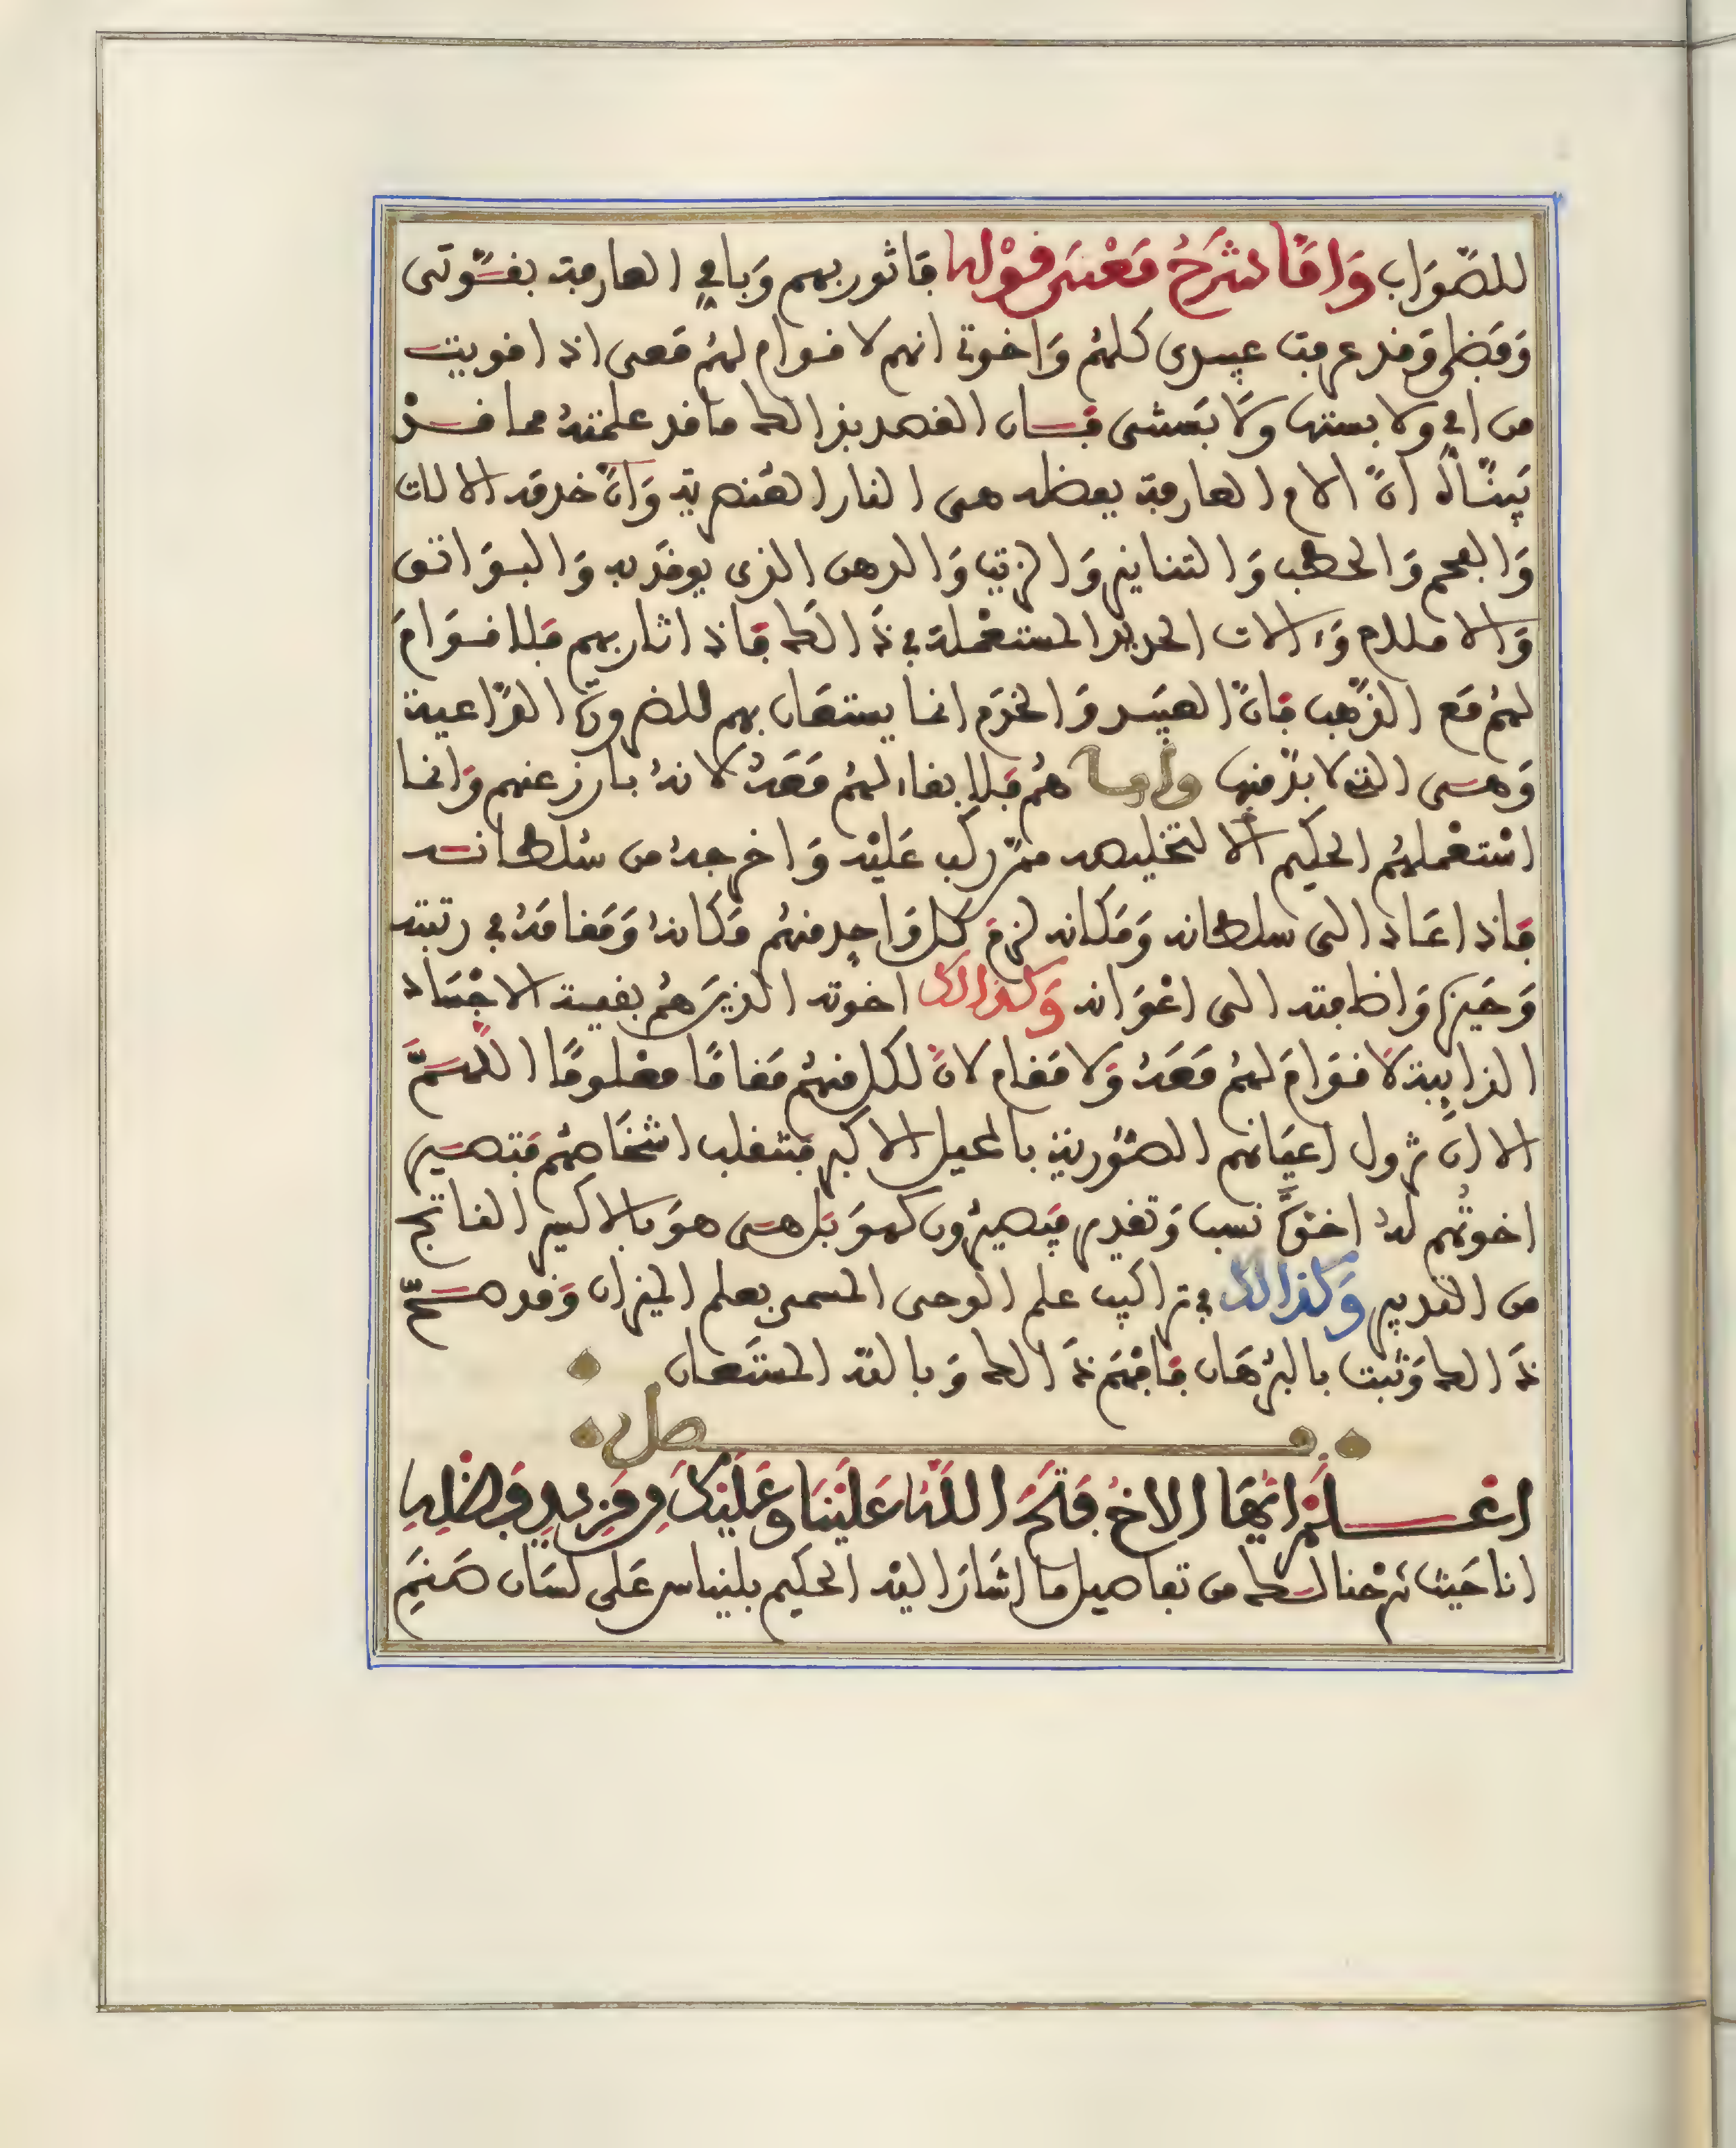 للصّوَاب وَامّا شَرْحُ مَعْنَى قوْله فاثور بهم وَبامي العارفة بقسّوتى
وَفضلى وَقد عرفت عبيدى كلهُم وَاخوتى انهم لا قوام لهُم مَعى اذ اقويت
من امي ولا بستها وَلا بَستى فسان القصد بذالك ما قد علمتهُ مما قد
بَينّاه انّ الام العارفة بعظله هى النار العُنصرية وَانّ خدمه الالات
وَالفحم وَالحطب وَالتنانير وَالزيت وَالدهن الذى يوقَد به وَالبوَاتق
وَالاملاح وَءالات الحديد المستعْملة في ذَالك فاذ اثار بهم فلا قوَامَ
لهُم مَع الذّهب فانّ العبيد وَالخدَم انما يستعَان بهم للضرورة الدّاعية
وَهى التى لا بدّ منها وَاما هُم فلا بقاء لهُم مَعَهُ لانهُ بارز عنهم وَانما
اسْتعْملهُم الحكيم الا لتخليصه ممّن ركب عَليْه وَاخرجهُ من سُلطانه
فاذ اعَاد الى سلطانه وَمَكانه لزم كل وَاحِد منهُم مَكانهُ وَمَقامَهُ في رتبته
وَحَيزه وَاضافته الى اعْوَانه وَكذالك اخوته الذينَ هُم بقية الاجْسَاد
الذايبة لا قوَامَ لهُم مَعَهُ وَلا مَقام لانّ لكل منهُم مَقامًا معْلومًا اللّهمَّ
الا انْ تزول اعيَانهم الصّوْرية بالحيل الاكبر فتنقلب اشخَاصهُم فتصير
اخوتُهم لهُ اخوَّة نسب وَتقدير فيَصيرُون كهوَ بَل هى هوَ بالاكسير الفاتح
من القدير وَكذالك في تراكيب علم الوحى المسمى بعلم الميزان وَقد صحّ
ذَالك وَثبت بالبرْهَان فافهَم ذَالك وَبالله المستَعان
فصل
اعْلَمْ ايُّهَا الاخُ فَتَحَ اللَّهُ عَلَيْنَا وَعَلَيْكَ مِن مَزِيدِ فَضْلِهِ
انا حَيث شرحْنا لك من تفاصيل ما اشَارَ اليْه الحكيم بلنياس عَلى لسَان صَنَمِ